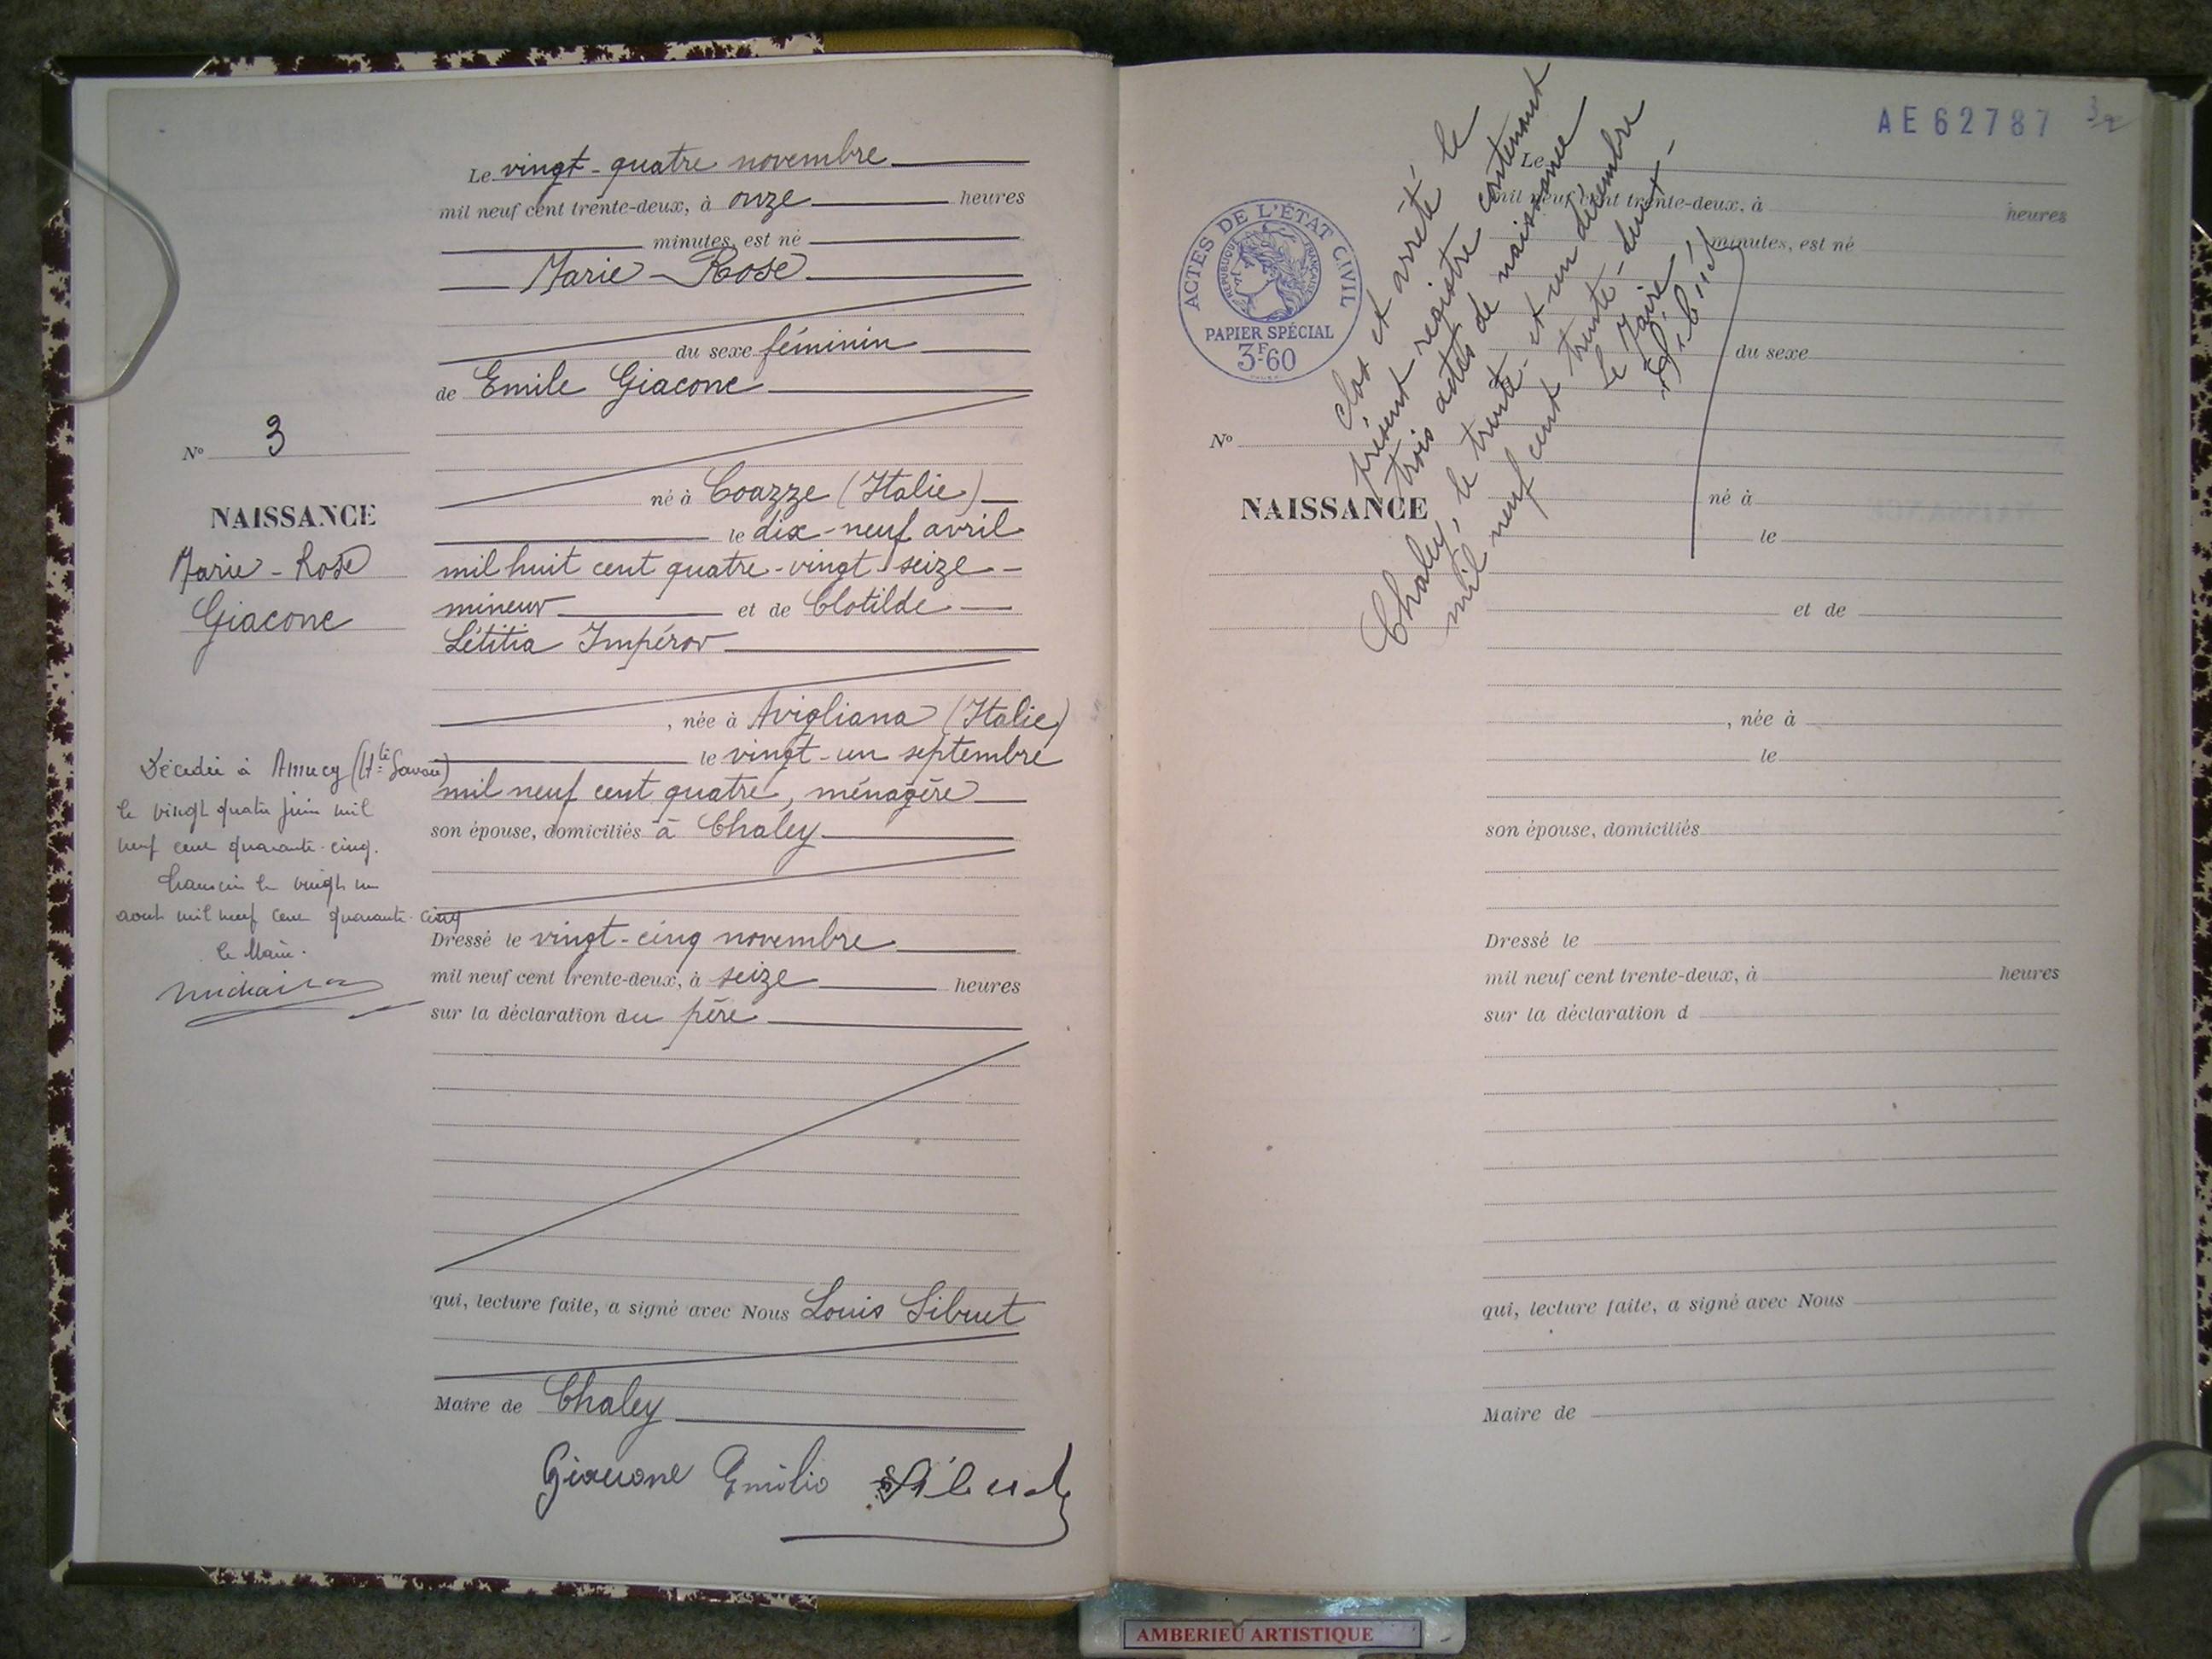 Le vingt-quatre novembre
mil neuf cent trente-deux, à onze heures
minutes, est né
Marie-Rose
du sexe féminin
de Emile Giacone
né à Coazze (Italie)
le dix-neuf avril
mil huit cent quatre-vingt-seize
mineur et de Clotilde
Létitia Impéror
, née à Avigliana (Italie)
le vingt-un septembre
mil neuf cent quatre, ménagère
son épouse, domiciliés à Chaley
Dressé le vingt-cinq novembre
mil neuf cent trente-deux, à seize heures
sur la déclaration du père
qui, lecture faite, a signé avec Nous Louis Sibuet
Maire de Chaley
Giacone Emilio Sibuet
No 3
NAISSANCE
Marie-Rose
Giacone
Décédée à Annecy (Hte Savoie)
le vingt quatre juin mil
neuf cent quarante-cinq.
le vingt un
août mil neuf cent quarante-cinq
le Maire.
AE 62787
ACTES DE L'ÉTAT CIVIL
RÉPUBLIQUE FRANÇAISE
PAPIER SPÉCIAL
3F60
Clos et arrêté le
présent registre contenant
trois actes de naissance
Chaley, le trente-et-un décembre
mil neuf cent trente-deux-
Le Maire
Sibuet
Le
mil neuf cent trente-deux, à heures
minutes, est né
du sexe
de
No
né à
NAISSANCE
le
et de
, née à
le
son épouse, domiciliés
Dressé le
mil neuf cent trente-deux, à heures
sur la déclaration d
qui, lecture faite, a signé avec Nous
Maire de
AMBERIEU ARTISTIQUE